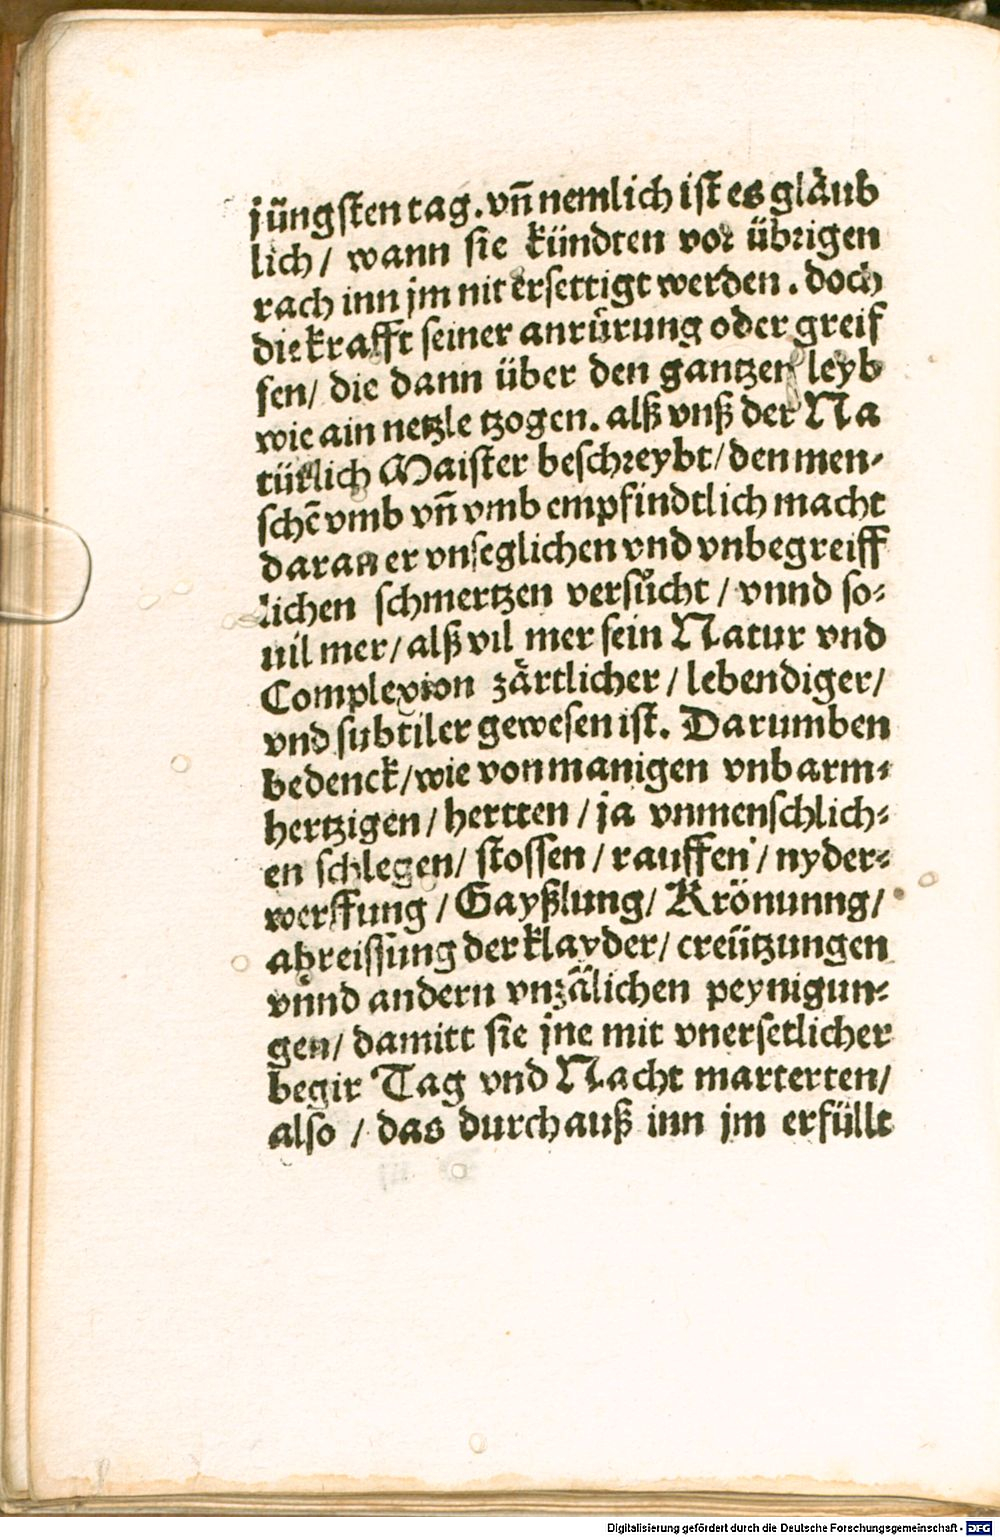 jüngsten tag. vñ nemlich ist es gläub
lich / wann sie kündten vor übrigen
rach inn jm nit ersettigt werden. doch
die krafft seiner anrürung oder greif
fen / die dann über den gantzen leyb
wie ain netzle tzogen. alß vnß der Na
türlich Maister beschreybt / den men-
schē vmb vñ vmb empfindtlich macht
daran er vnseglichen vnd vnbegreiff
lichen schmertzen versücht / vnnd so-
uil mer / alß vil mer sein Natur vnd
Complexion zärtlicher / lebendiger /
vnd subtiler gewesen ist. Darumben
bedenck / wie von manigen vnbarm-
hertzigen / hertten / ja vnmenschlich-
en schlegen / stossen / rauffen / nyder-
werffung / Gayßlung / Krönunng /
abreissung der klayder / creützungen
vnnd andern vnzälichen peynigun-
gen / damitt sie jne mit vnersetlicher
begir Tag vnd Nacht marterten /
also / das durchauß inn jm erfüllt
Digitalisierung gefördert durch die Deutsche Forschungsgemeinschaft - DFG